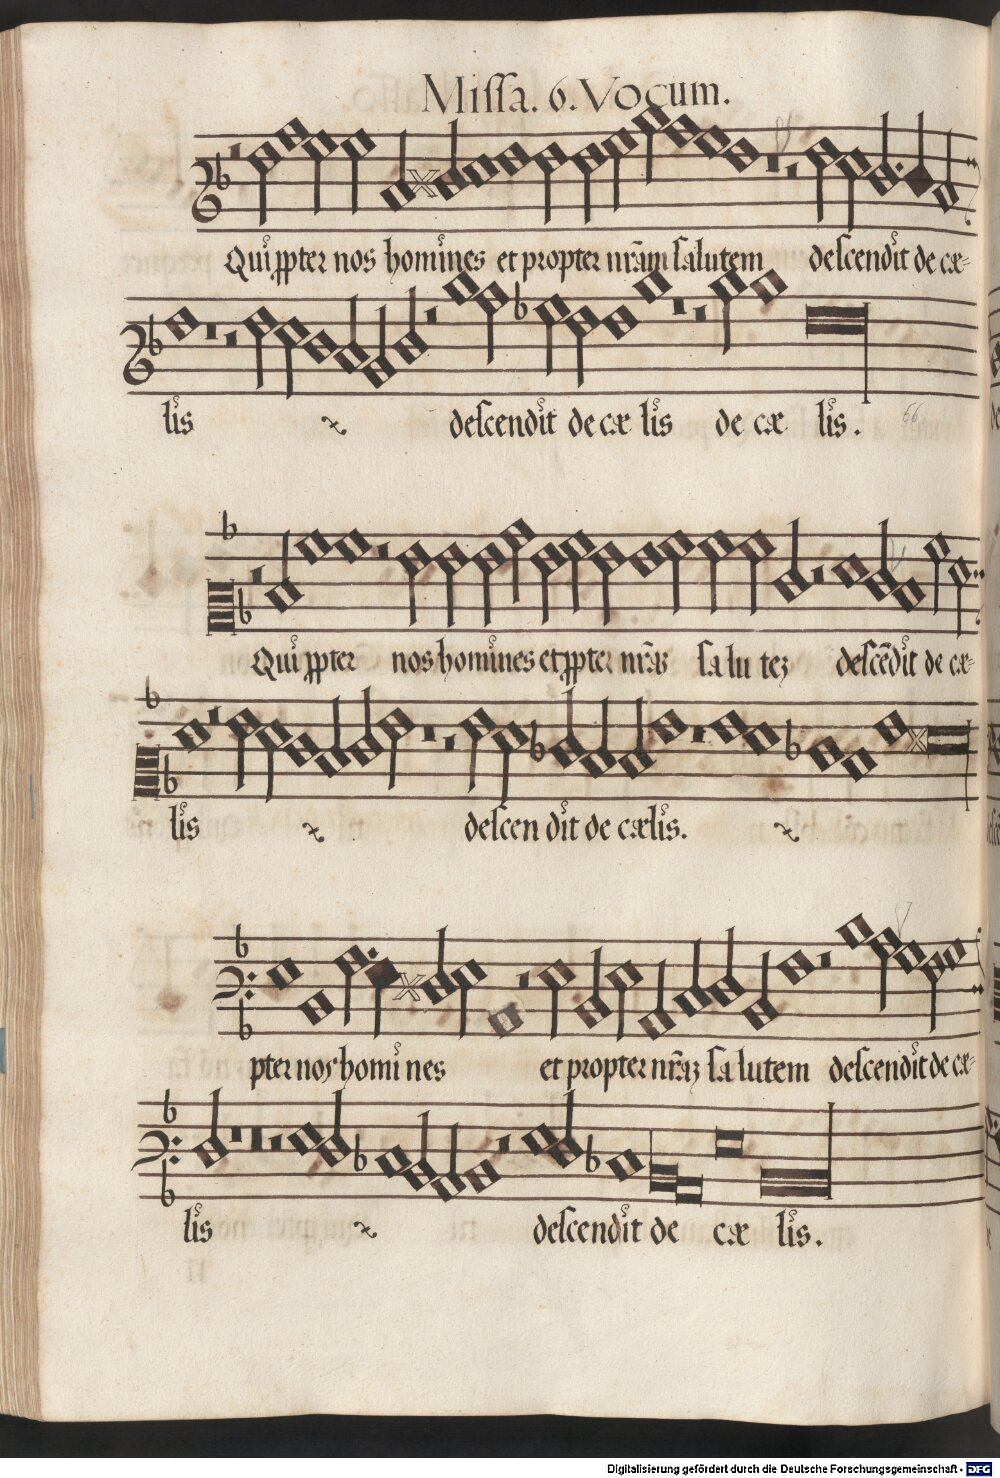 Missa. 6. Vocum.
Qui ꝓpter nos homines et propter nr̄am salutem descendit de cæ=
lis descendit de cæ lis de cæ lis.
66
Qui ꝓpter nos homines et ꝓpter nr̄aȝ salu teȝ descēdit de cæ=
lis descen dit de cælis.
pter nos homi nes et propter nr̄aȝ sa lutem descendit de cæ=
lis descendit de cæ lis.
Digitalisierung gefördert durch die Deutsche Forschungsgemeinschaft - DFG